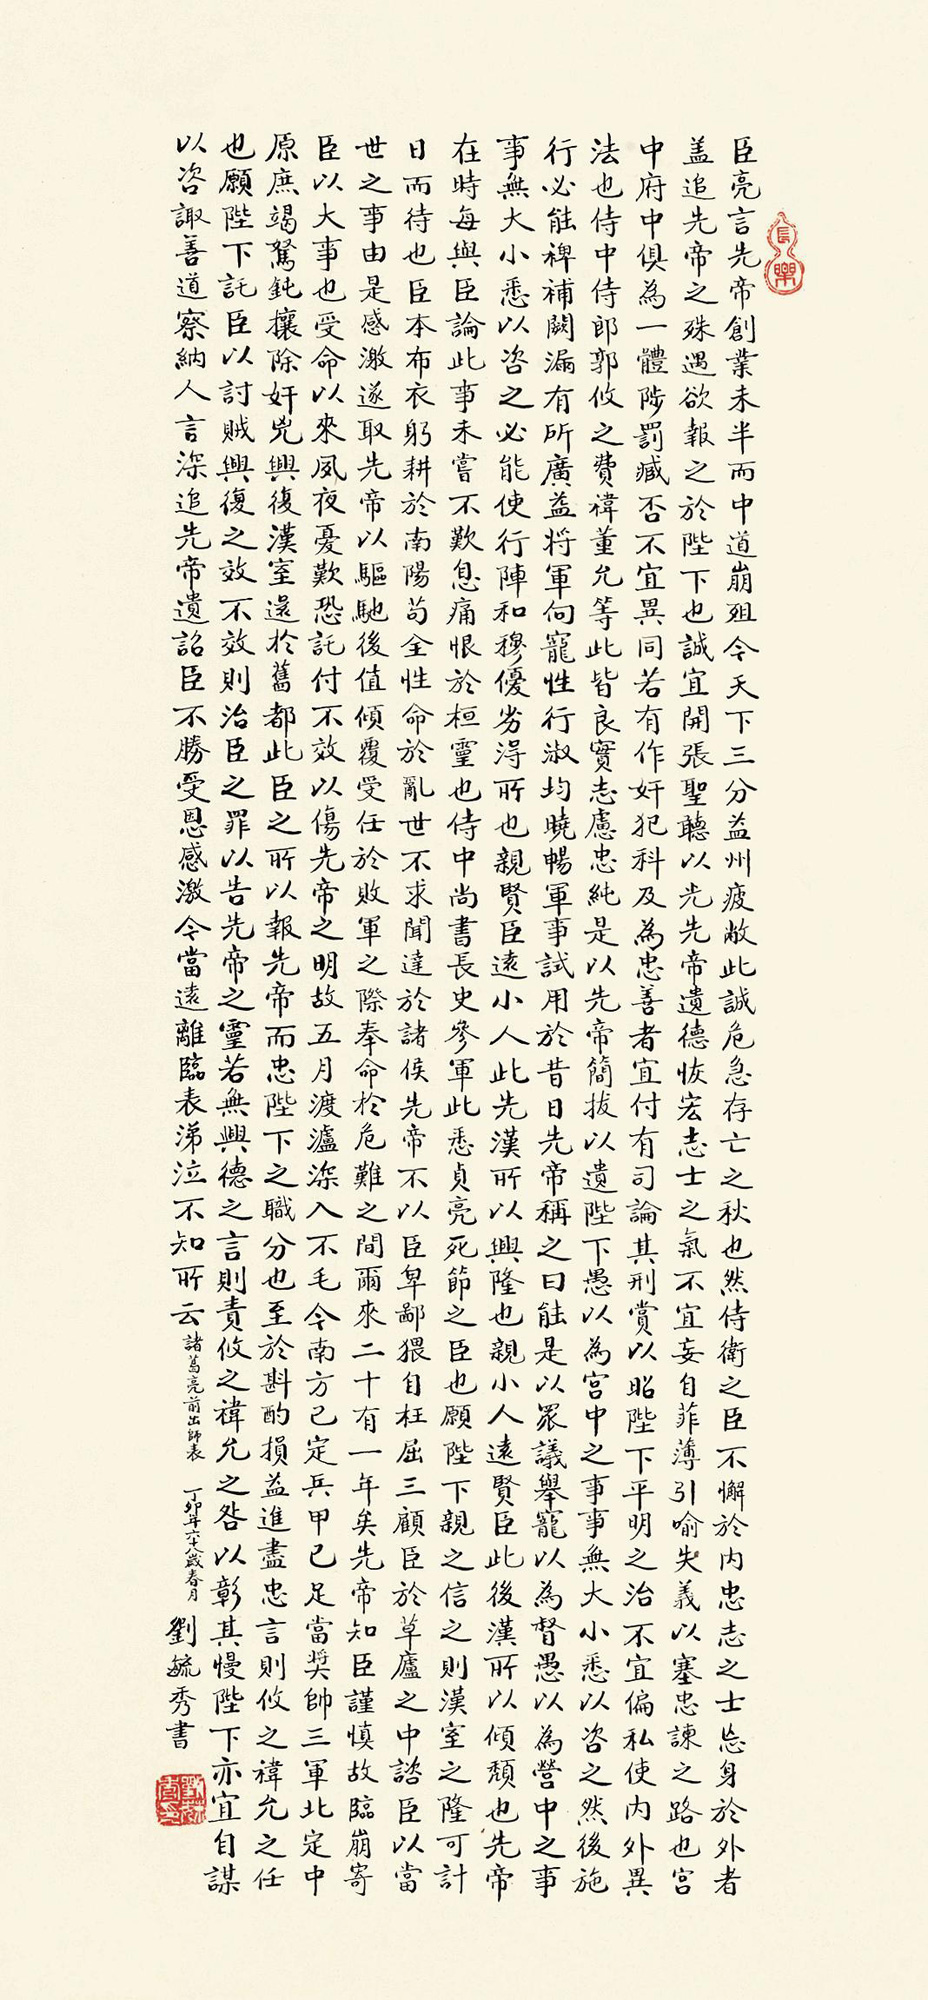 長樂
臣亮言先帝創業未半而中道崩殂今天下三分益州疲敝此誠危急存亡之秋也然侍衛之臣不懈於內忠志之士忘身於外者
盖追先帝之殊遇欲報之於陛下也誠宜開張聖聽以光先帝遺德恢宏志士之氣不宜妄自菲薄引喻失義以塞忠諫之路也宮
中府中俱為一體陟罰臧否不宜異同若有作奸犯科及為忠善者宜付有司論其刑賞以昭陛下平明之治不宜偏私使內外異
法也侍中侍郎郭攸之費禕董允等此皆良實志慮忠純是以先帝簡拔以遺陛下愚以為宮中之事事無大小悉以咨之然後施
行必能裨補闕漏有所廣益将軍向寵性行淑均曉暢軍事試用於昔日先帝稱之曰能是以眾議舉寵以為督愚以為營中之事
事無大小悉以咨之必能使行陣和穆優劣淂所也親賢臣遠小人此先漢所以興隆也親小人遠賢臣此後漢所以傾頹也先帝
在時每與臣論此事未嘗不歎息痛恨於桓靈也侍中尚書長史參軍此悉貞亮死節之臣也願陛下親之信之則漢室之隆可計
日而待也臣本布衣躬耕於南陽苟全性命於亂世不求聞達於諸侯先帝不以臣卑鄙猥自枉屈三顧臣於草廬之中諮臣以當
世之事由是感激遂取先帝以驅馳後值傾覆受任於敗軍之際奉命於危難之間爾來二十有一年矣先帝知臣謹慎故臨崩寄
臣以大事也受命以來夙夜憂歎恐託付不效以傷先帝之明故五月渡瀘深入不毛今南方已定兵甲已足當奬帥三軍北定中
原庶竭駑鈍攘除奸兇興復漢室還於舊都此臣之所以報先帝而忠陛下之職分也至於斟酌損益進盡忠言則攸之禕允之任
也願陛下託臣以討賊興復之效不效則治臣之罪以告先帝之靈若無興德之言則責攸之禕允之咎以彰其慢陛下亦宜自謀
以咨諏善道察納人言深追先帝遺詔臣不勝受恩感激今當遠離臨表涕泣不知所云 諸葛亮前出師表 丁卯年六十八歲春月 劉毓秀書